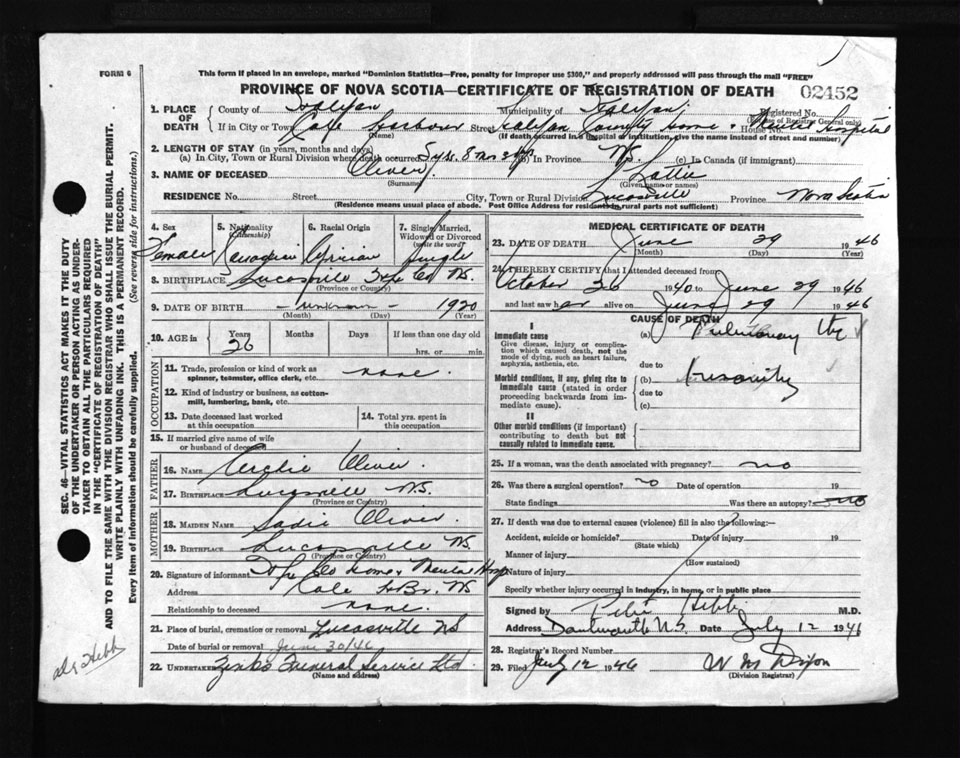 FORM 6
This form if placed in an envelope, marked "Dominion Statistics—Free, penalty for improper use $300," and properly addressed will pass through the mail "FREE"
PROVINCE OF NOVA SCOTIA—CERTIFICATE OF REGISTRATION OF DEATH 02452
1. PLACE OF DEATH County of Halifax Municipality of Halifax Registered No.
(For use of Registrar General only)
If in City or Town Cole Harbour Street Halifax County Home & Mental Hospital House No.
(Name) (If death occurred in a hospital or institution, give the name instead of street and number)
2. LENGTH OF STAY (in years, months and days)
(a) In City, Town or Rural Division where death occurred 5 yrs. 8 mo. (b) In Province N.S. (c) In Canada (if immigrant)
3. NAME OF DECEASED Oliver Lattie
(Surname) (Given name or names)
RESIDENCE No. Street City, Town or Rural Division Lucasville Province Nova Scotia
(Residence means usual place of abode. Post Office Address for residents in rural parts not sufficient)
4. Sex 5. Nationality (Citizenship) 6. Racial Origin 7. Single, Married, Widowed or Divorced (write the word)
Female Canadian African Single
8. BIRTHPLACE Lucasville Hfx Co N.S.
(Province or Country)
9. DATE OF BIRTH unknown 1920
(Month) (Day) (Year)
10. AGE in Years Months Days If less than one day old
26 hrs. or min.
OCCUPATION
11. Trade, profession or kind of work as spinner, teamster, office clerk, etc. none.
12. Kind of industry or business, as cotton-mill, lumbering, bank, etc.
13. Date deceased last worked at this occupation 14. Total yrs. spent in this occupation
15. If married give name of wife or husband of deceased
FATHER
16. NAME Oliver.
17. BIRTHPLACE Lucasville N.S.
(Province or Country)
MOTHER
18. MAIDEN NAME Sadie Oliver.
19. BIRTHPLACE Lucasville N.S.
(Province or Country)
20. Signature of informant Hfx Co Home & Mental Hosp
Address Cole Hbr. N.S
Relationship to deceased none.
21. Place of burial, cremation or removal Lucasville N.S
Date of burial or removal June 30/46
22. UNDERTAKER Zinks Funeral Service Ltd
(Name and address)
MEDICAL CERTIFICATE OF DEATH
23. DATE OF DEATH June 29 1946
(Month) (Day) (Year)
24. I HEREBY CERTIFY that I attended deceased from
October 26 1940 to June 29 1946
and last saw her alive on June 29 1946
CAUSE OF DEATH
I
Immediate cause
Give disease, injury or complication which caused death, not the mode of dying, such as heart failure, asphyxia, asthenia, etc.
(a) Pulmonary Tbc
due to
Morbid conditions, if any, giving rise to immediate cause (stated in order proceeding backwards from immediate cause).
(b) Insanity
due to
(c)
II
Other morbid conditions (if important) contributing to death but not causally related to immediate cause.
25. If a woman, was the death associated with pregnancy? no
26. Was there a surgical operation? no Date of operation 19
State findings Was there an autopsy? no
27. If death was due to external causes (violence) fill in also the following:—
Accident, suicide or homicide? Date of injury 19
(State which)
Manner of injury
(How sustained)
Nature of injury
Specify whether injury occurred in industry, in home, or in public place
Signed by Hebb M.D.
Address Dartmouth N.S. Date July 12 1946
28. Registrar's Record Number
29. Filed July 12 1946 W M Dixon
(Division Registrar)
SEC. 46—VITAL STATISTICS ACT MAKES IT THE DUTY
OF THE UNDERTAKER OR PERSON ACTING AS UNDERTAKER
TO OBTAIN ALL THE PARTICULARS REQUIRED
IN THE "CERTIFICATE OF REGISTRATION OF DEATH"
AND TO FILE THE SAME WITH THE DIVISION REGISTRAR WHO SHALL ISSUE THE BURIAL PERMIT.
WRITE PLAINLY WITH UNFADING INK. THIS IS A PERMANENT RECORD.
Every item of information should be carefully supplied. (See reverse side for instructions.)
Dr Hebb